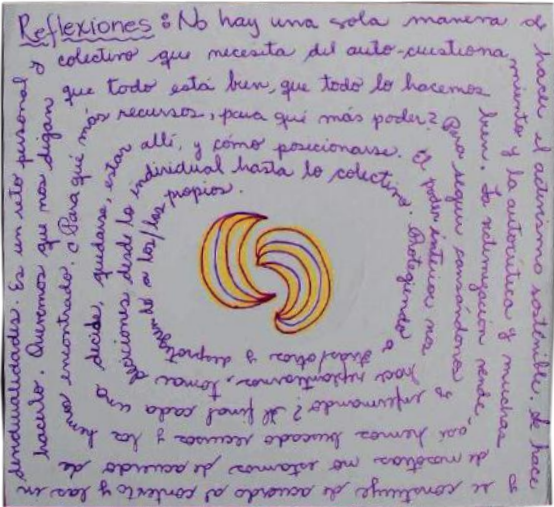 Reflexiones: No hay una sola manera de
hacer el activismo sostenible. Se hace o
se construye de acuerdo al contexto y las in
dividualidades. Es un reto personal y
colectivo que necesita del auto-cuestiona
miento y la autocrítica y muchas
de nosotras no estamos de acuerdo de
hacerlo. Queremos que nos digan
que todo está bien, que todo lo hacemos
bien. La vende,
así hemos buscado recursos y los
hemos encontrado. ¿Para qué
más recursos, para qué más poder?
Para seguir cansándonos
y enfermando? Al final cada una
decide, quedarse, estar
allí, y cómo posicionarse.
El poder interior nos
hace replantearnos, tomar
decisiones desde lo
individual hasta lo colectivo.
Protegiendo a
y desprotegiendo
a los/las
propios.